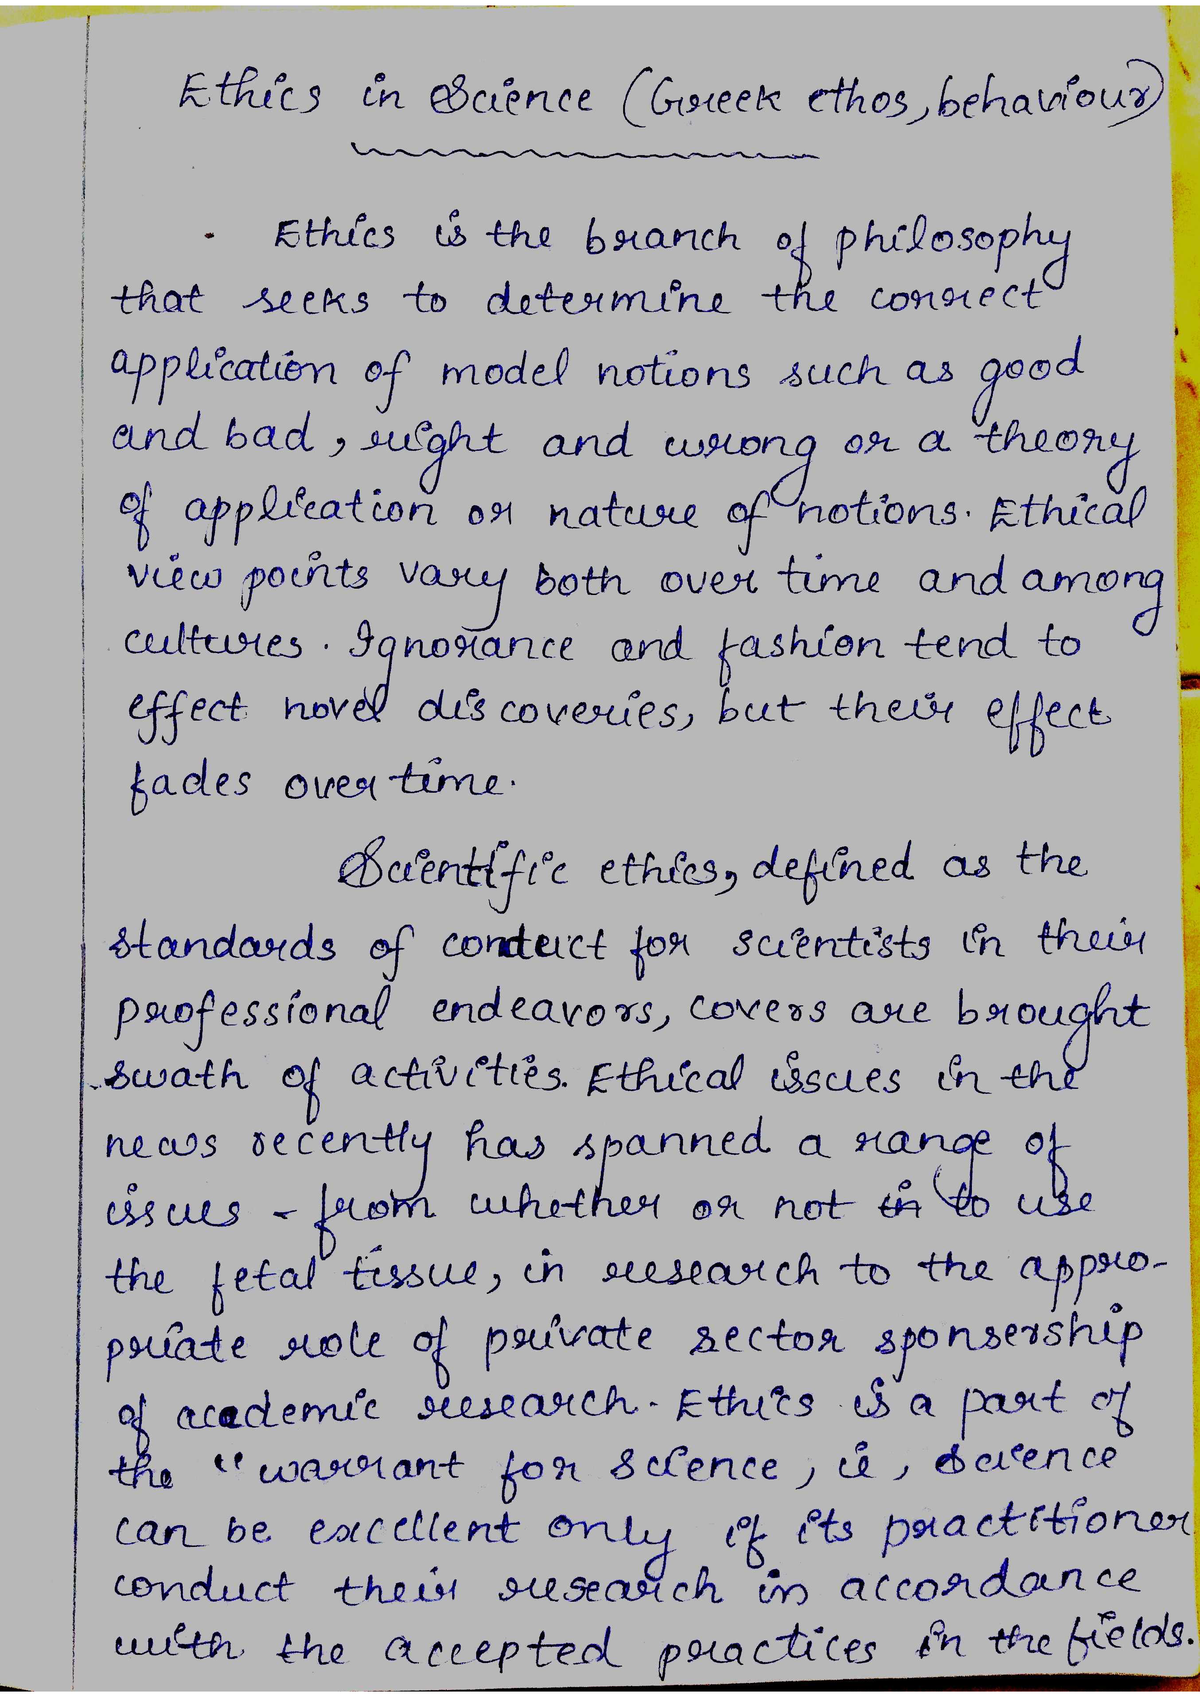 Ethics in Science (Greek ethos, behaviour)
Ethics is the branch of philosophy
that seeks to determine the correct
application of model notions such as good
and bad, right and wrong or a theory
of application or nature of notions. Ethical
view points vary both over time and among
cultures. Ignorance and fashion tend to
effect novel discoveries, but their effect
fades over time.
Scientific ethics, defined as the
standards of conduct for scientists in their
professional endeavors, covers are brought
swath of activities. Ethical issues in the
news recently has spanned a range of
issues - from whether or not in to use
the fetal tissue, in research to the appro-
priate role of private sector sponsership
of academic research. Ethics is a part of
the "warrant for science, ie, science
can be excellent only if its practitioner
conduct their research in accordance
with the accepted practices in the fields.